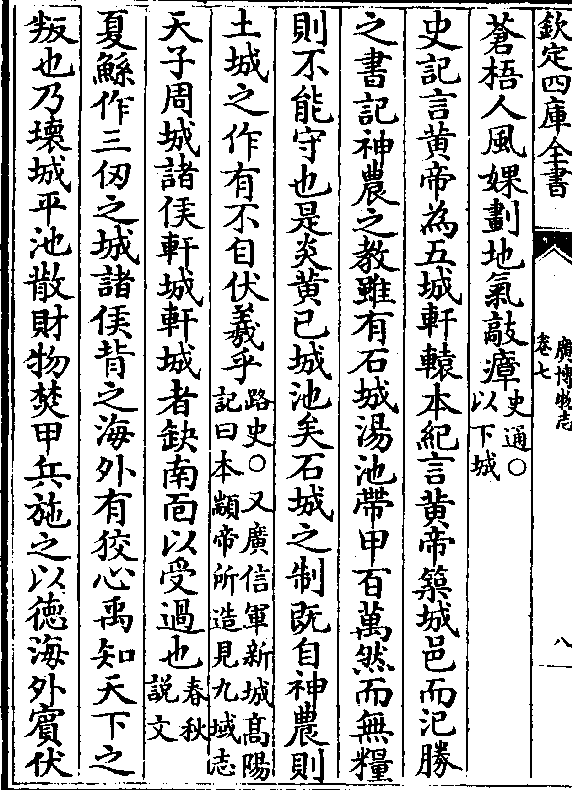 欽定四庫全書
廣博物志
卷七
八
蒼梧人風婐劃地氣敲瘴史通○以下城
史記言黄帝為五城軒轅本紀言黄帝築城邑而氾勝
之書記神農之教雖有石城湯池帶甲百萬然而無糧
則不能守也是炎黄已城池矣石城之制既自神農則
土城之作有不自伏羲乎路史○又廣信軍新城髙陽記曰本顓帝所造見九域志
天子周城諸侯軒城軒城者缺南面以受過也春秋說文
夏鯀作三仞之城諸侯背之海外有狡心禹知天下之
叛也乃壊城平池散財物焚甲兵施之以徳海外賓伏